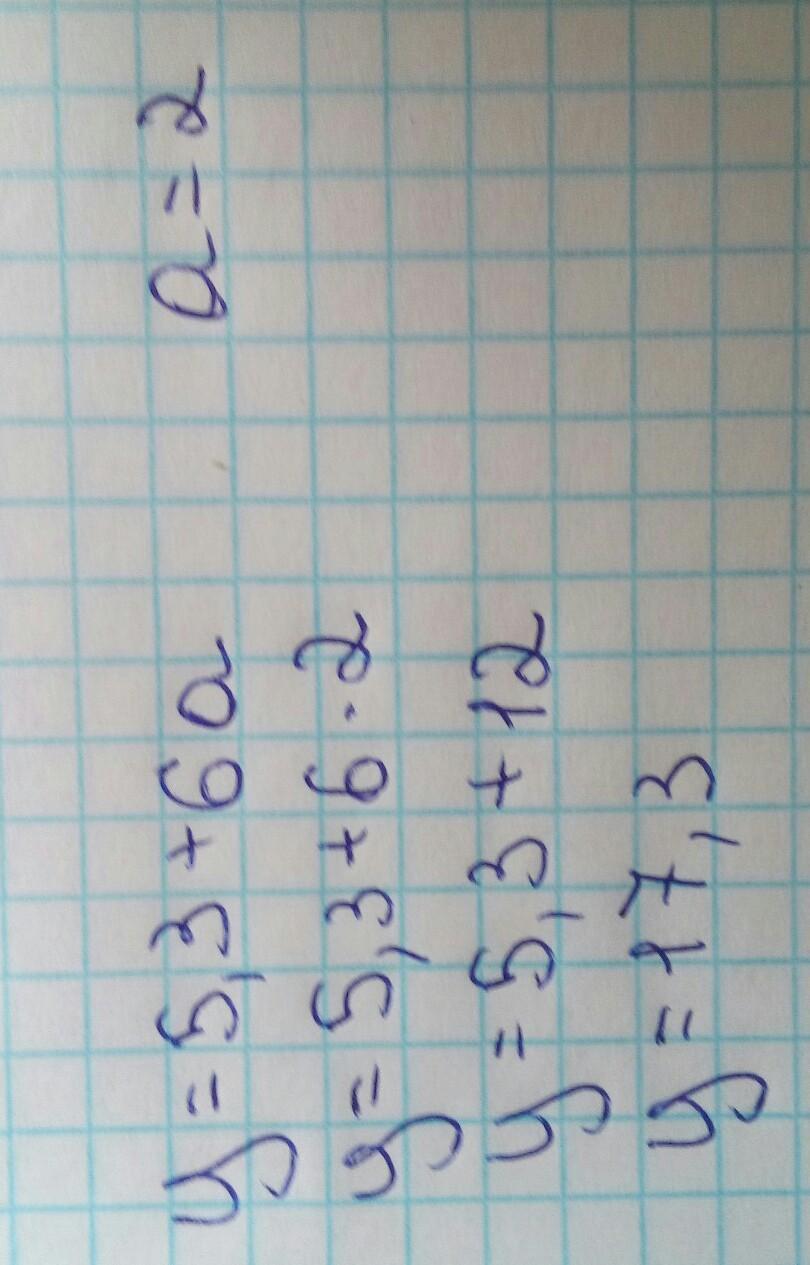 y = 5,3 + 6a a = 2
y = 5,3 + 6 · 2
y = 5,3 + 12
y = 17,3